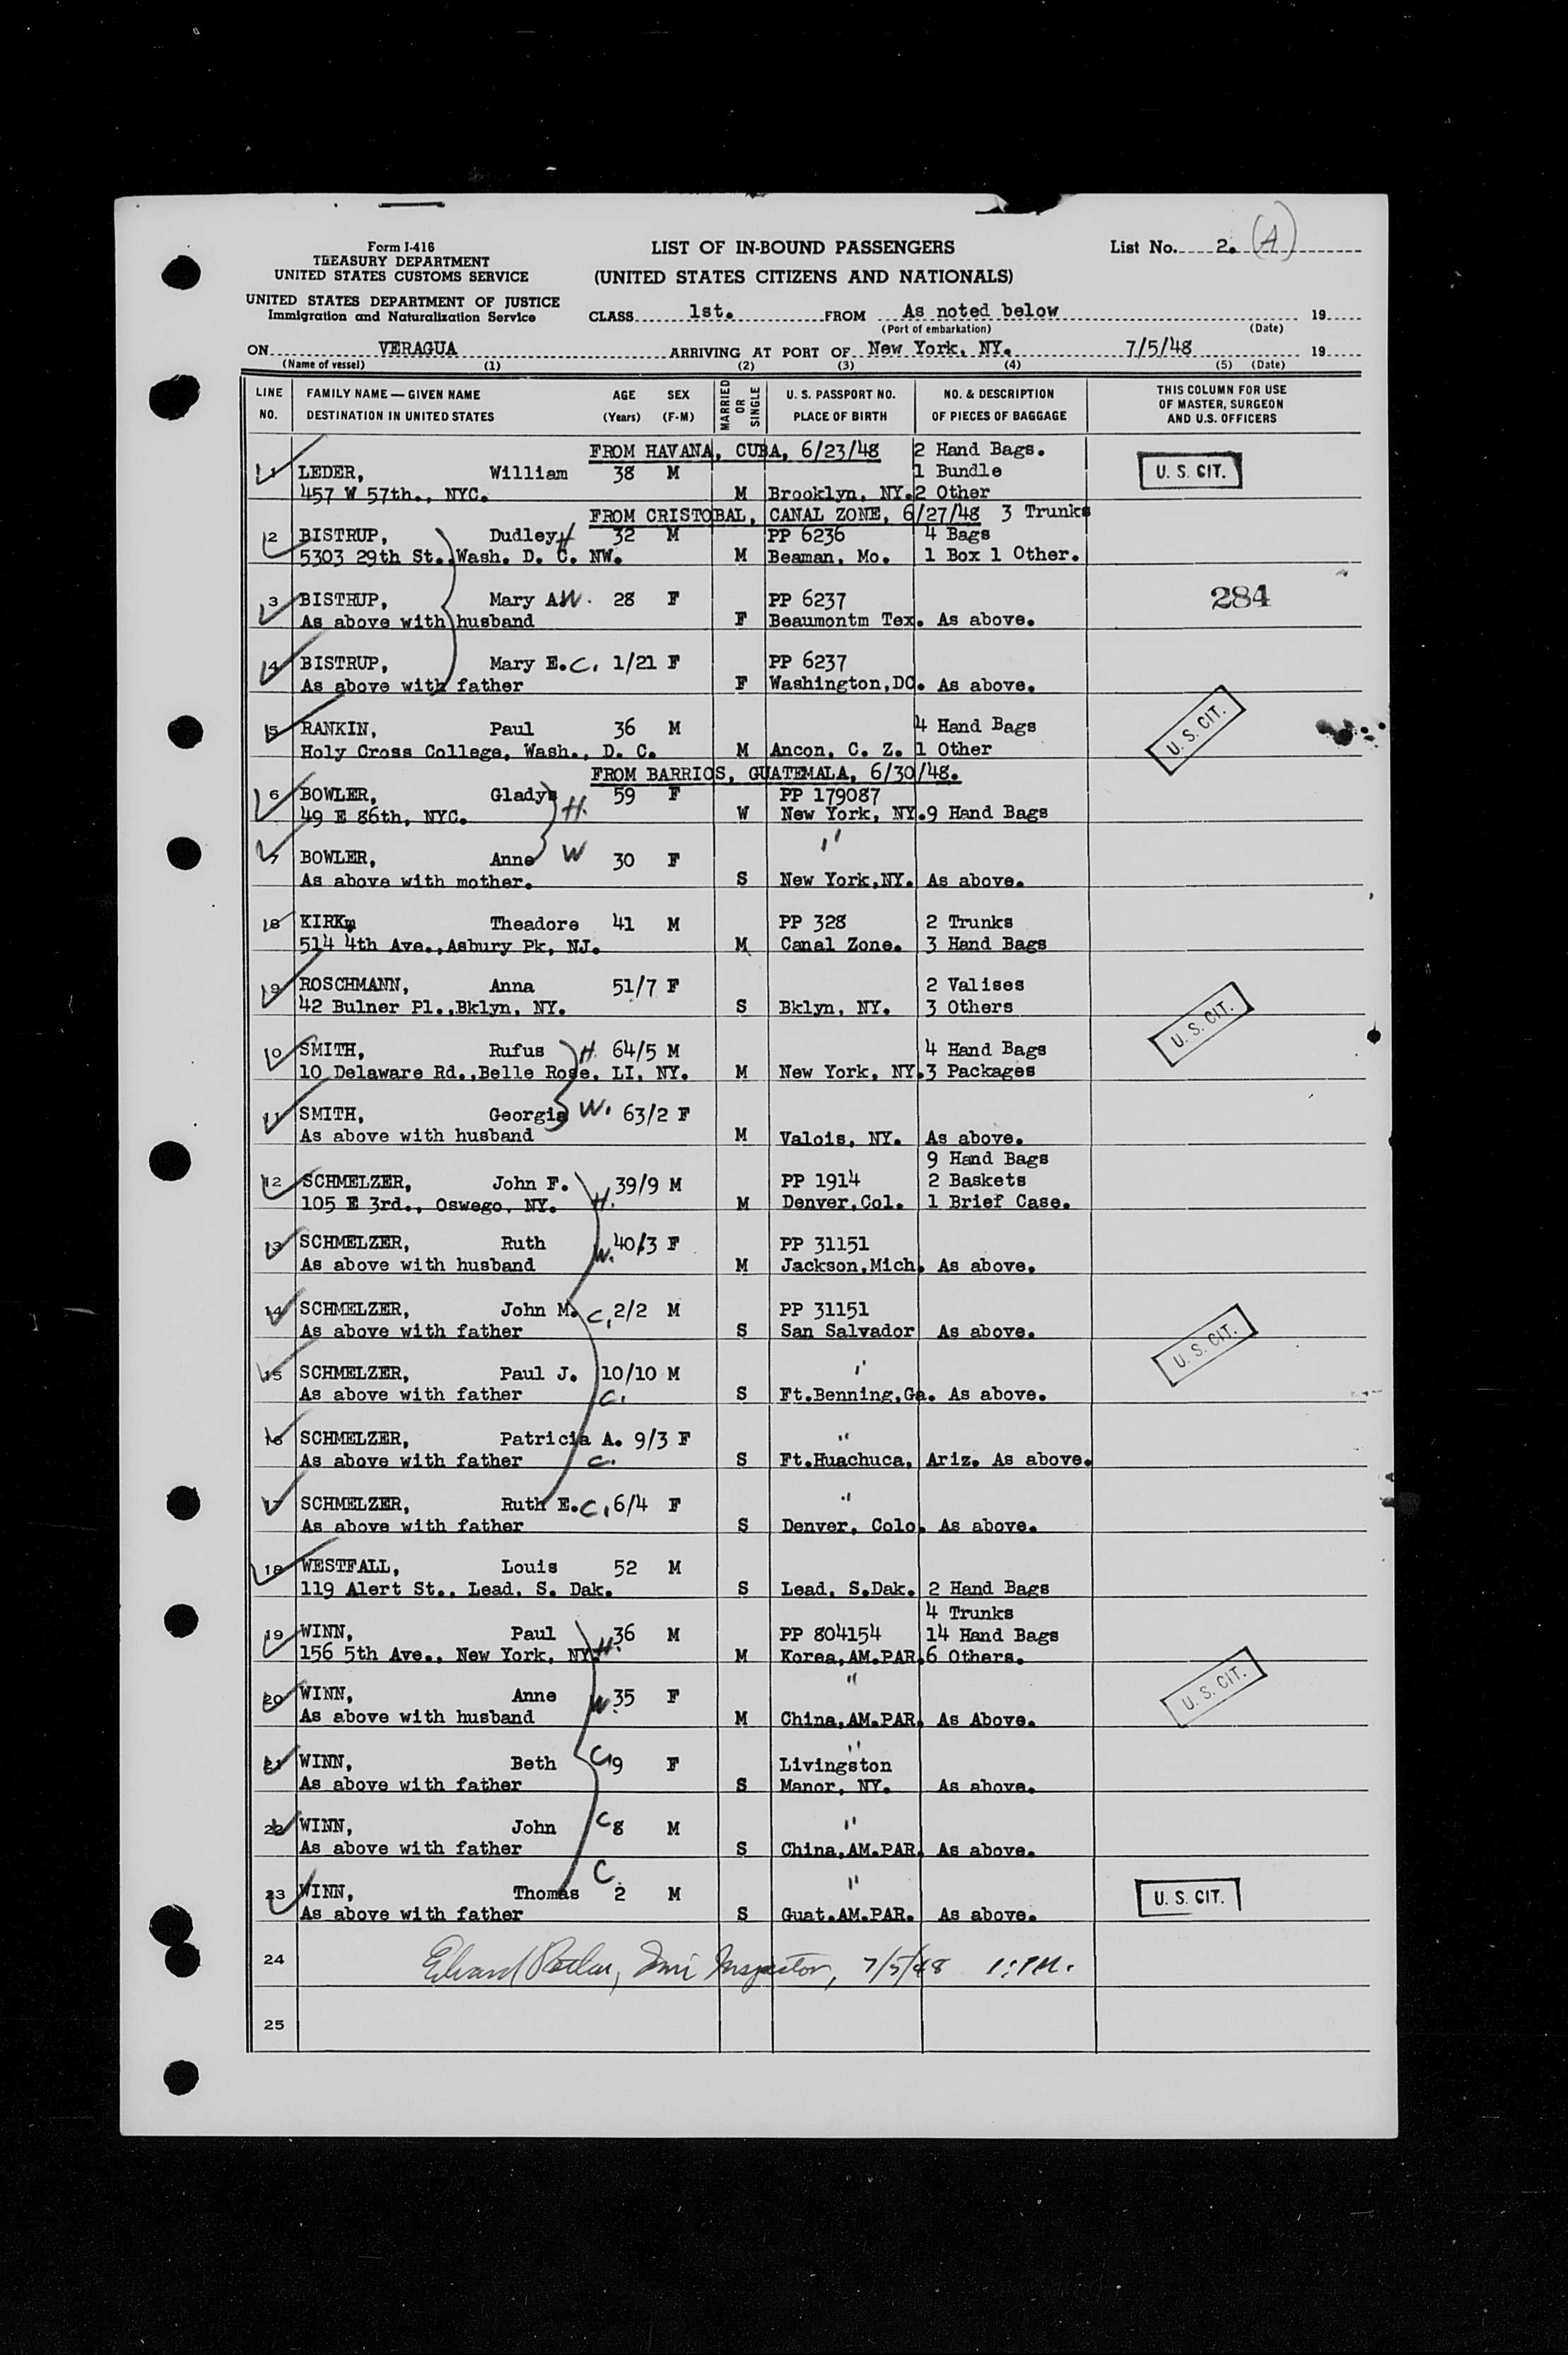 Form I-416
TREASURY DEPARTMENT
UNITED STATES CUSTOMS SERVICE
UNITED STATES DEPARTMENT OF JUSTICE
Immigration and Naturalization Service
LIST OF IN-BOUND PASSENGERS
(UNITED STATES CITIZENS AND NATIONALS)
List No. 2. (A)
CLASS 1st. FROM As noted below 19
(Port of embarkation) (Date)
ON VERAGUA ARRIVING AT PORT OF New York, NY. 7/5/48 19
(Name of vessel) (1) (2) (3) (4) (5) (Date)
LINE NO.
FAMILY NAME — GIVEN NAME
DESTINATION IN UNITED STATES
AGE (Years)
SEX (F-M)
MARRIED OR SINGLE
U. S. PASSPORT NO.
PLACE OF BIRTH
NO. & DESCRIPTION
OF PIECES OF BAGGAGE
THIS COLUMN FOR USE
OF MASTER, SURGEON
AND U.S. OFFICERS
FROM HAVANA, CUBA, 6/23/48 2 Hand Bags.
1 LEDER, William 38 M 1 Bundle U. S. CIT.
457 W 57th., NYC. M Brooklyn, NY. 2 Other
FROM CRISTOBAL, CANAL ZONE, 6/27/48 3 Trunks
2 BISTRUP, Dudley H 32 M PP 6236 4 Bags
5303 29th St., Wash. D. C. NW. M Beaman, Mo. 1 Box 1 Other.
3 BISTRUP, Mary A. W. 28 F PP 6237 284
As above with husband F Beaumontm Tex. As above.
4 BISTRUP, Mary E. C. 1/21 F PP 6237
As above with father F Washington,DC. As above.
5 RANKIN, Paul 36 M 4 Hand Bags U. S. CIT.
Holy Cross College, Wash., D. C. M Ancon, C. Z. 1 Other
FROM BARRIOS, GUATEMALA, 6/30/48.
6 BOWLER, Gladys H. 59 F PP 179087
49 E 86th, NYC. W New York, NY. 9 Hand Bags
7 BOWLER, Anne W 30 F "
As above with mother. S New York,NY. As above.
8 KIRKm Theadore 41 M PP 328 2 Trunks
514 4th Ave., Asbury Pk, NJ. M Canal Zone. 3 Hand Bags
9 ROSCHMANN, Anna 51/7 F 2 Valises
42 Bulner Pl.,Bklyn, NY. S Bklyn, NY. 3 Others U. S. CIT.
10 SMITH, Rufus H. 64/5 M 4 Hand Bags
10 Delaware Rd.,Belle Rose, LI, NY. M New York, NY. 3 Packages
11 SMITH, Georgia W. 63/2 F
As above with husband M Valois, NY. As above.
9 Hand Bags
12 SCHMELZER, John F. 39/9 M PP 1914 2 Baskets
105 E 3rd., Oswego, NY. H. M Denver,Col. 1 Brief Case.
13 SCHMELZER, Ruth W. 40/3 F PP 31151
As above with husband M Jackson,Mich. As above.
14 SCHMELZER, John M. C. 2/2 M PP 31151
As above with father S San Salvador As above. U. S. CIT.
15 SCHMELZER, Paul J. 10/10 M "
As above with father C. S Ft.Benning,Ga. As above.
16 SCHMELZER, Patricia A. 9/3 F "
As above with father C. S Ft.Huachuca, Ariz. As above.
17 SCHMELZER, Ruth E. C. 6/4 F "
As above with father S Denver, Colo. As above.
18 WESTFALL, Louis 52 M
119 Alert St., Lead, S. Dak. S Lead, S.Dak. 2 Hand Bags
4 Trunks
19 WINN, Paul 36 M PP 804154 14 Hand Bags
156 5th Ave., New York, NY. H. M Korea,AM.PAR. 6 Others.
20 WINN, Anne W. 35 F " U. S. CIT.
As above with husband M China,AM.PAR. As Above.
"
21 WINN, Beth C. 9 F Livingston
As above with father S Manor, NY. As above.
22 WINN, John C 8 M "
As above with father S China,AM.PAR. As above.
23 WINN, Thomas C. 2 M " U. S. CIT.
As above with father S Guat.AM.PAR. As above.
24 Inspector, 7/5/48
25